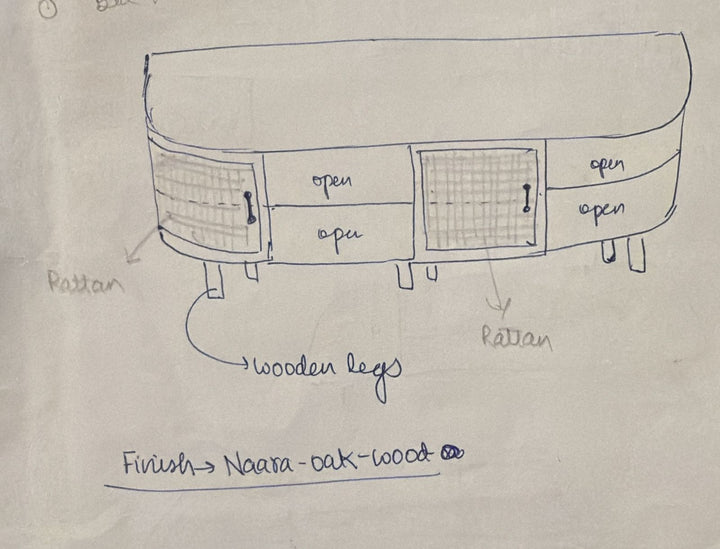 open
open
open
open
Rattan
Rattan
wooden legs
Finish → Naara-oak-wood